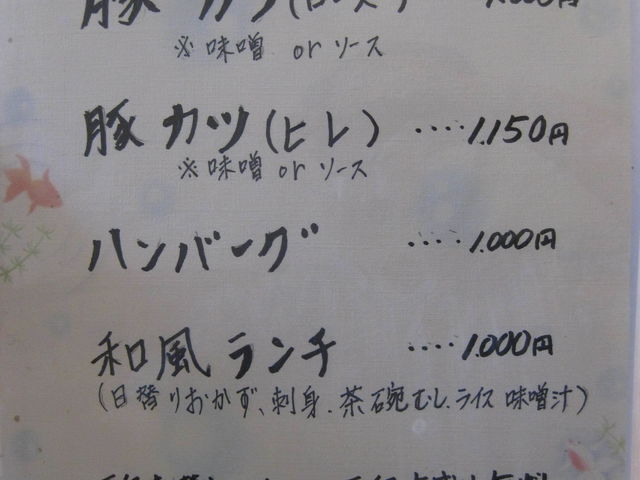 豚カツ(ロース)
※味噌 or ソース
豚カツ(ヒレ) ････1.150円
※味噌 or ソース
ハンバーグ ････1.000円
和風ランチ ････1.000円
(日替りおかず、刺身.茶碗むし.ライス 味噌汁)